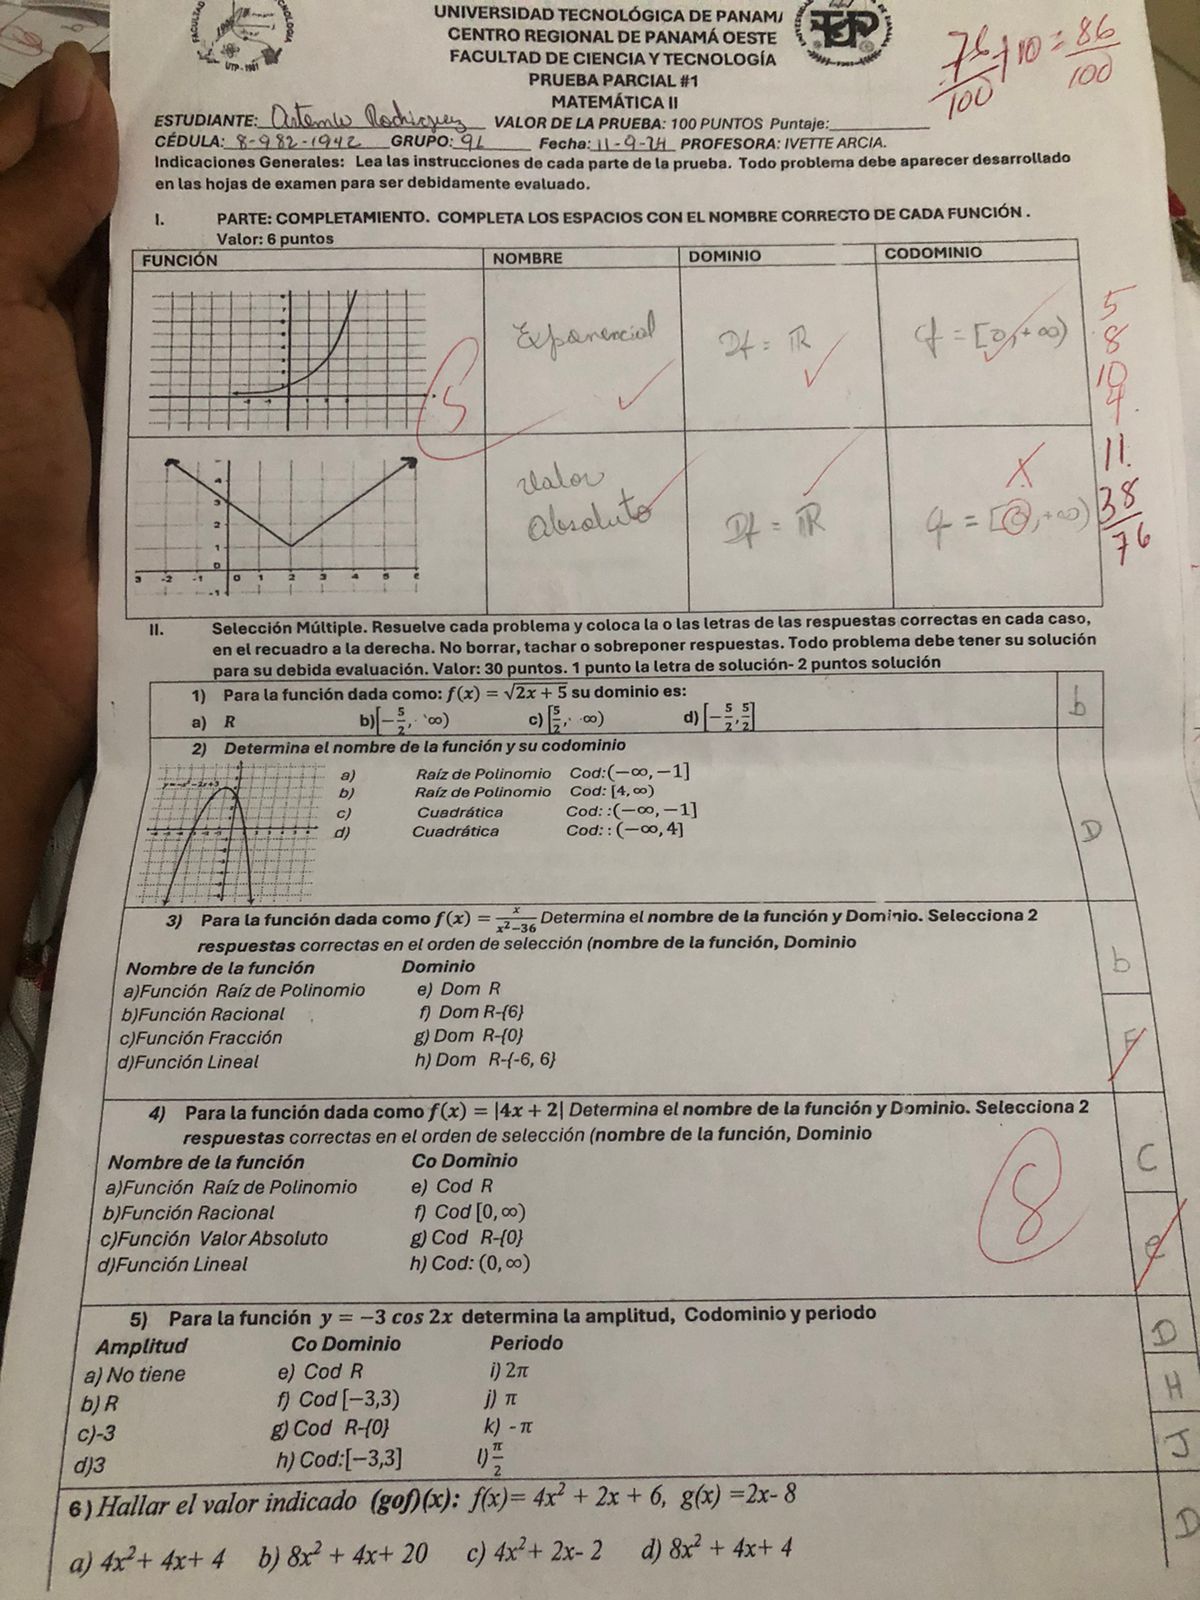 UNIVERSIDAD TECNOLÓGICA DE PANAM
CENTRO REGIONAL DE PANAMÁ OESTE
FACULTAD DE CIENCIA Y TECNOLOGÍA
PRUEBA PARCIAL #1
MATEMÁTICA II
UTP - 1981
76/100 + 10 = 86/100
ESTUDIANTE: VALOR DE LA PRUEBA: 100 PUNTOS Puntaje:
CÉDULA: 8-982-1942 GRUPO: 91 Fecha: 11-9-24 PROFESORA: IVETTE ARCIA.
Indicaciones Generales: Lea las instrucciones de cada parte de la prueba. Todo problema debe aparecer desarrollado
en las hojas de examen para ser debidamente evaluado.
I. PARTE: COMPLETAMIENTO. COMPLETA LOS ESPACIOS CON EL NOMBRE CORRECTO DE CADA FUNCIÓN .
Valor: 6 puntos
FUNCIÓN NOMBRE DOMINIO CODOMINIO
Exponencial Df = ℝ Cf = [0,+∞)
5
Valor
Absoluto Df = ℝ Cf = [0,+∞)
5
8
10
4
11
38
76
II. Selección Múltiple. Resuelve cada problema y coloca la o las letras de las respuestas correctas en cada caso,
en el recuadro a la derecha. No borrar, tachar o sobreponer respuestas. Todo problema debe tener su solución
para su debida evaluación. Valor: 30 puntos. 1 punto la letra de solución- 2 puntos solución
1) Para la función dada como: f(x) = √2x + 5 su dominio es: b
a) R b)[−5/2, ∞) c) [5/2, ∞) d) [−5/2, 5/2]
2) Determina el nombre de la función y su codominio
a) Raíz de Polinomio Cod:(−∞, −1]
b) Raíz de Polinomio Cod: [4, ∞)
c) Cuadrática Cod: :(−∞, −1]
d) Cuadrática Cod: : (−∞, 4] D
3) Para la función dada como f(x) = x/(x²−36) Determina el nombre de la función y Dominio. Selecciona 2
respuestas correctas en el orden de selección (nombre de la función, Dominio
Nombre de la función Dominio b
a)Función Raíz de Polinomio e) Dom R
b)Función Racional f) Dom R-{6}
c)Función Fracción g) Dom R-{0} F
d)Función Lineal h) Dom R-{-6, 6}
4) Para la función dada como f(x) = |4x + 2| Determina el nombre de la función y Dominio. Selecciona 2
respuestas correctas en el orden de selección (nombre de la función, Dominio
Nombre de la función Co Dominio C
a)Función Raíz de Polinomio e) Cod R
b)Función Racional f) Cod [0, ∞) 8
c)Función Valor Absoluto g) Cod R-{0} e
d)Función Lineal h) Cod: (0, ∞)
5) Para la función y = −3 cos 2x determina la amplitud, Codominio y periodo
Amplitud Co Dominio Periodo D
a) No tiene e) Cod R i) 2π
b) R f) Cod [−3,3) j) π H
c)-3 g) Cod R-{0} k) - π
d)3 h) Cod:[−3,3] l) π/2 J
6) Hallar el valor indicado (gof)(x): f(x)= 4x² + 2x + 6, g(x) =2x- 8
a) 4x²+ 4x+ 4 b) 8x² + 4x+ 20 c) 4x²+ 2x- 2 d) 8x² + 4x+ 4 D